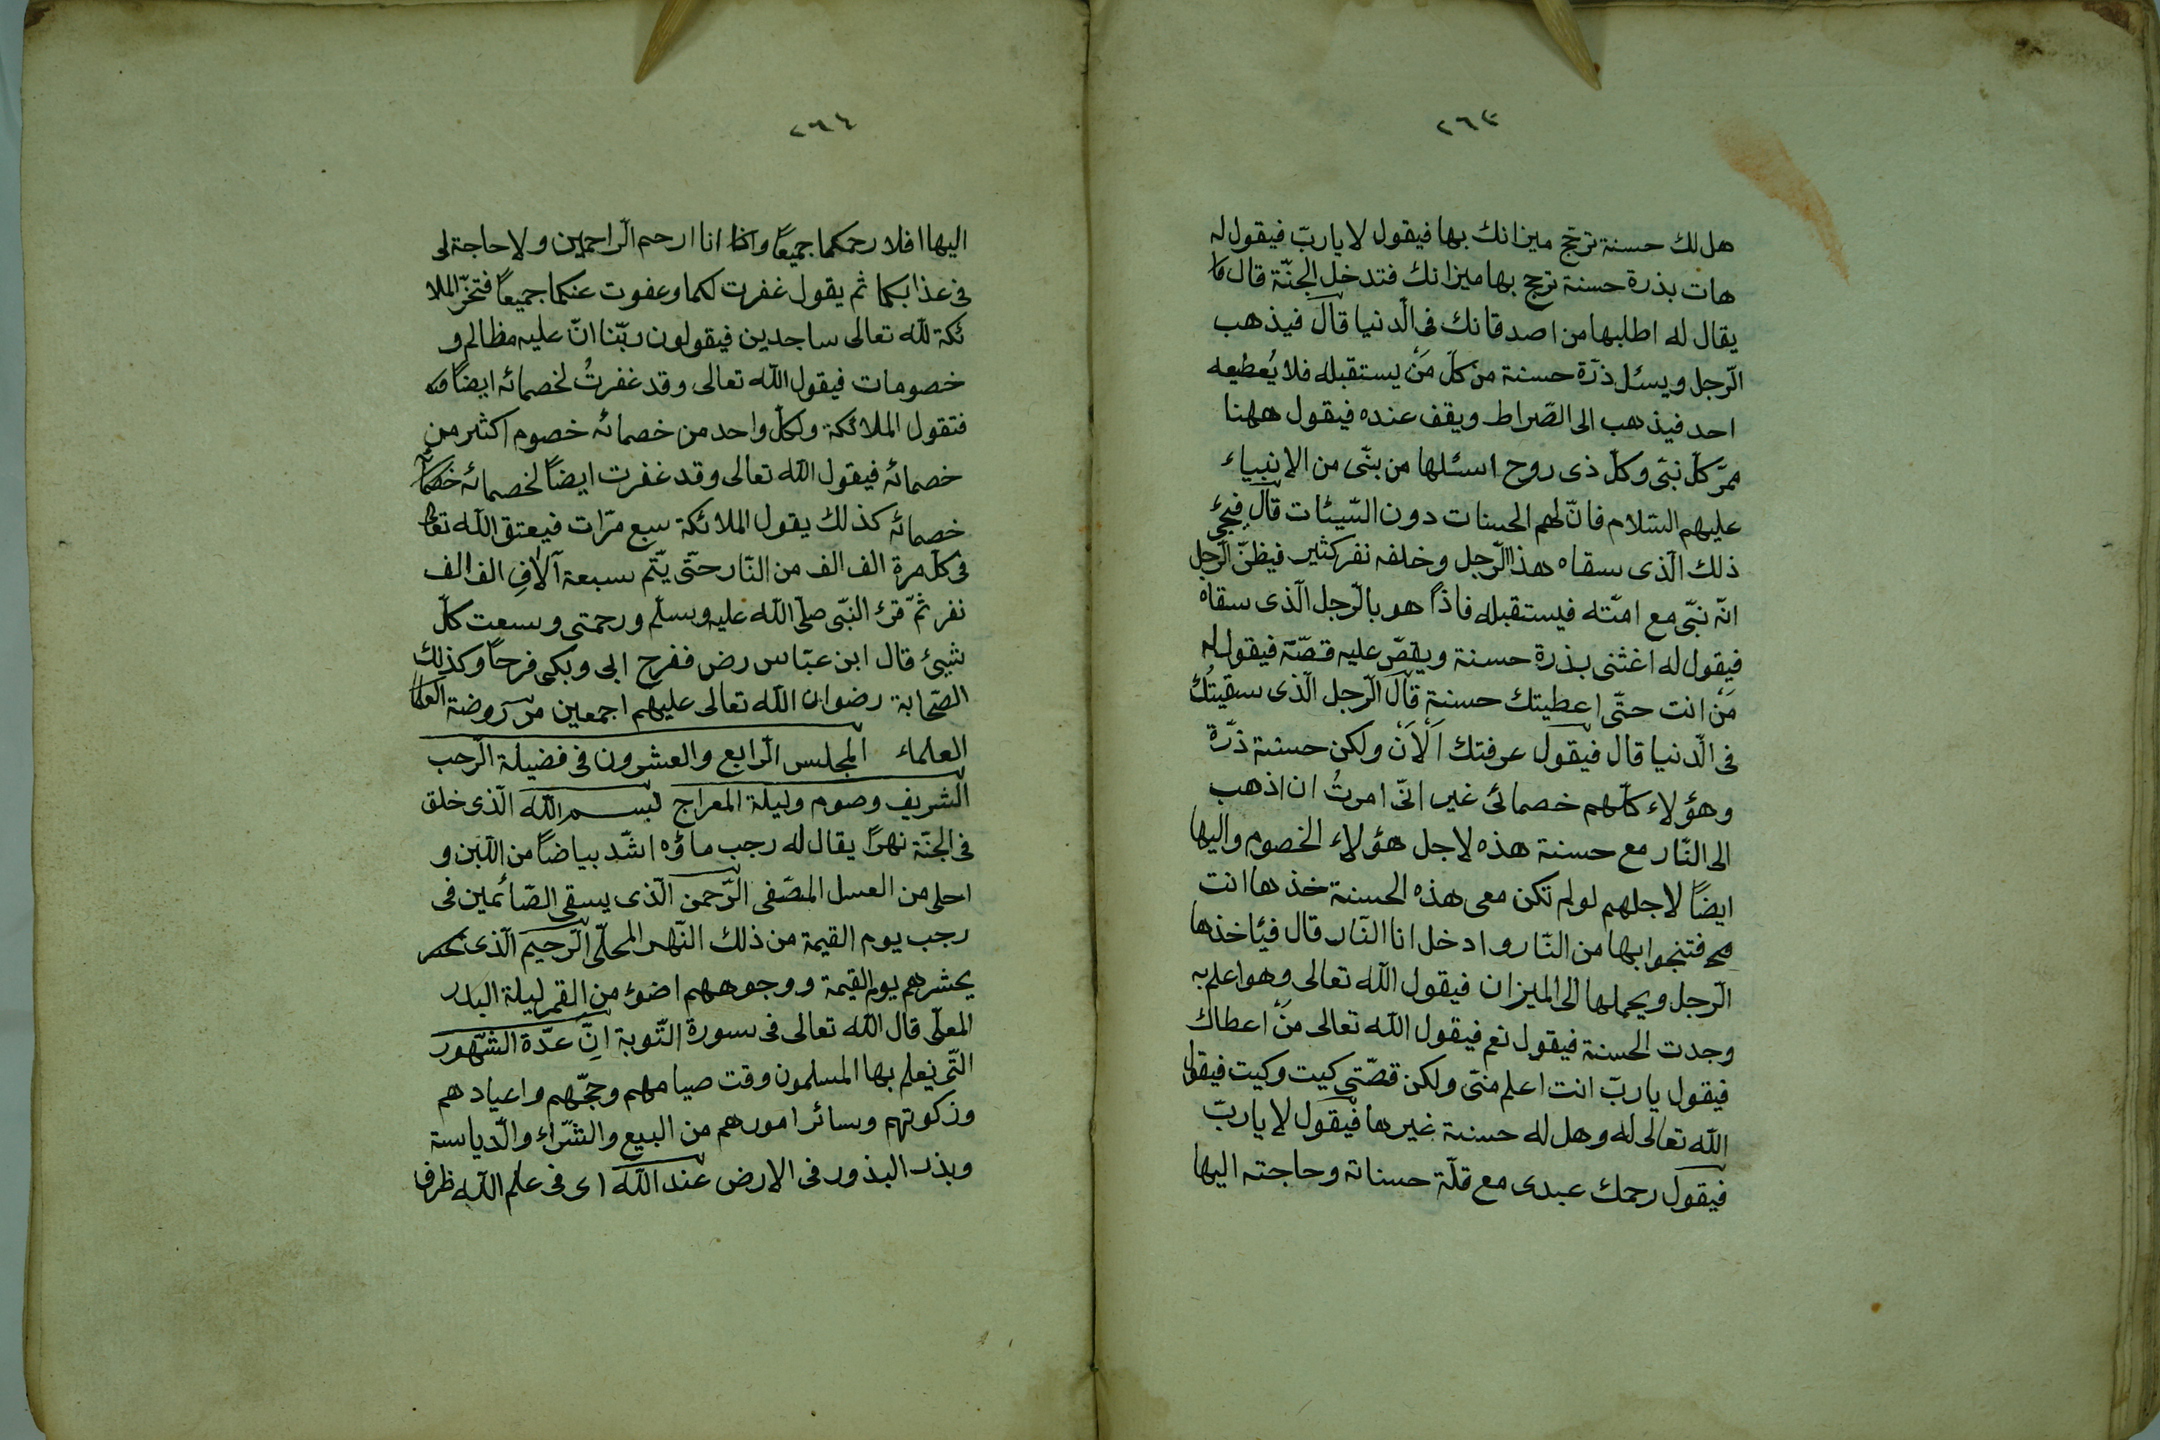 ٢٦٣
هل لك حسنة ترجّح ميزانك بها فيقول لا يا ربّ فيقول له
هات بذرة حسنة ترجح بها ميزانك فتدخل الجنّة قال
يقال له اطلبها من اصدقائك فى الّدنيا قال فيذهب
الّرجل ويسئل ذرّة حسنة من كلّ مَنْ يستقبله فلا يُعطيه
احد فيذهب الى الصّراط ويقف عنده فيقول ههنا
ممرّ كلّ نبّى وكلّ ذى روح اسئلها من نبّى من الانبياء
عليهم السّلام فانّ لهم الحسنات دون السّيئات قال فيجئ
ذلك الّذى سقاه هذا الّرجل وخلفه نفر كثير فيظنّ الّرجل
انّه نبّى مع امّته فيستقبله فاذاً هو بالّرجل الّذى سقاه
فيقول له اغثنى بذرة حسنة ويقصّ عليه قصّة فيقول له
مَنْ انت حتّى اعطيتك حسنة قال الّرجل الّذى سقيتُك
فى الّدنيا قال فيقول عرفتك اَلْاَنْ ولكن حسنة ذرّة
وهؤلاء كلّهم خصمائى غير انّى امرتُ ان اذهب
الى النّار مع حسنة هذه لاجل هؤلاء الخصوم واليها
ايضاً لاجلهم لو لم تكن معى هذه الحسنة خذها انت
فتنجوا بها من النّار وادخل انا النّار قال فيئاخذها
الّرجل ويحملها الى الميزان فيقول الله تعالى وهو اعلم به
وجدت الحسنة فيقول نعم فيقول الله تعالى مَنْ اعطاك
فيقول يا ربّ انت اعلم منّى ولكن قصّتى كيت وكيت فيقول
الله تعالى له وهل له حسنة غيرها فيقول لا يا ربّ
فيقول رحمك عبدى مع قلّة حسناته وحاجته اليها
٢٦٤
اليها افلا رحمكما جميعاً وانا ارحم الّراحمين ولا حاجة لى
فى عذابكما ثم يقول غفرت لكما وعفوت عنكما جميعاً فتخرّ الملا
ئكة لله تعالى ساجدين فيقولون ربّنا انّ عليه مظالم و
خصومات فيقول الله تعالى وقد غفرتُ لخصمائه ايضاً
فتقول الملائكة ولكلّ واحد من خصمائه خصوم اكثر من
خصمائه فيقول الله تعالى وقد غفرت ايضاً لخصمائه خصماء
خصمائه كذلك يقول الملائكة سبع مرّات فيعتق الله تعالى
فى كلّ مرة الف الف من النّار حتّى يتّم سبعة آلافِ الف الف
نفر ثمّ قرئ النبّى صلّى الله عليه وسلّم ورحمتى وسعت كلّ
شيئ قال ابن عبّاس رض ففرح ابى وبكى فرحاً وكذلك
الصّحابة رضوان الله تعالى عليهم اجمعين من روضة العلما
العلماء المجلس الّرابع والعشرون فى فضيلة الّرجب
الشريف وصوم وليلة المعراج بسم الله الّذى خلق
فى الجنّة نهراً يقال له رجب ماؤه اشّد بياضاً من اللّبن و
احلى من العسل المصّفى الّرحمن الّذى يسقى الصّائمين فى
رجب يوم القيمة من ذلك النّهر المحلّى الّرحيم الّذى
يحشرهم يوم القيمة ووجوههم اضوئ من القمر ليلة البدر
المعلّى قال الله تعالى فى سورة التّوبة انَّ عدّة الشّهور
التّى يعلم بها المسلمون وقت صيامهم وحجّهم واعيادهم
وزكوتهم وسائر امورهم من البيع والشّراء والّدياسة
وبذر البذور فى الارض عند الله اى فى علم الله ظرف